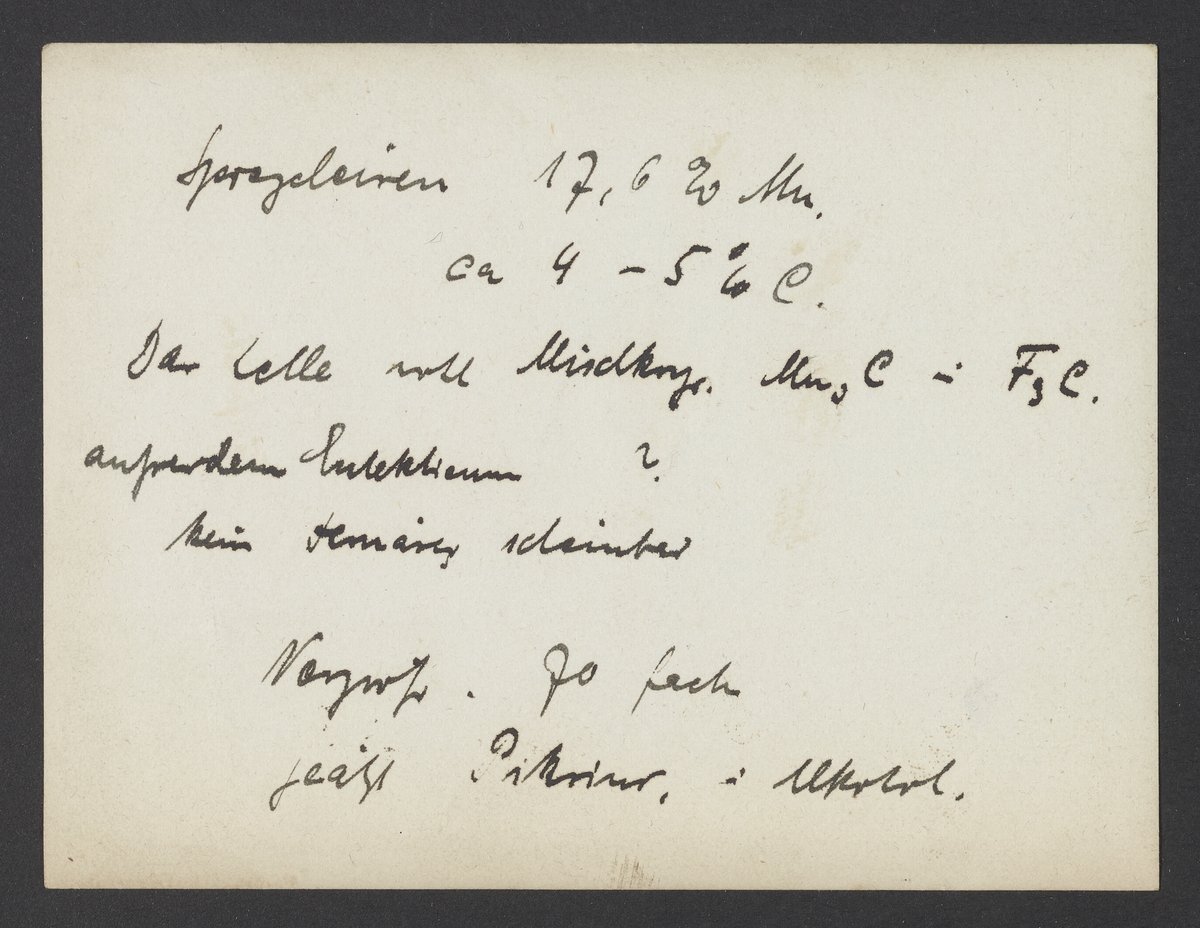 Spiegeleisen 17,6 % Mn.
ca 4 - 5 % C.
Das helle wohl Mischkrys. Mn3C u F3C.
außerdem Eutektikum ?
kein ternäres scheinbar
Vergröß. 70 fach
geätzt Pikrins. i Alkohol.